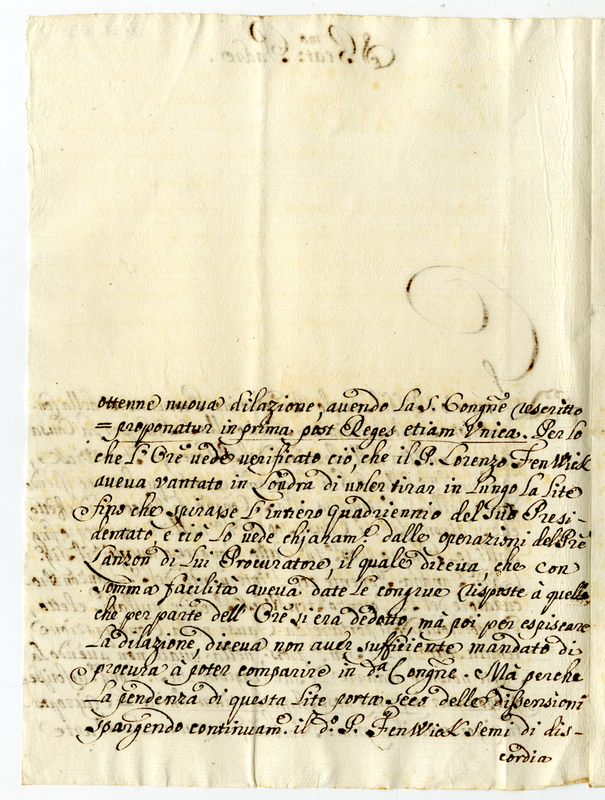 ottenne nuova dilazione, avendo la S. Congñe rescritto
= proponatur in prima post Reges etiam Unica. Per lo
che l'Orẽ vede verificato ciò, che il P. Lorenzo FenWick
aveva vantato in Londra di voler tirar in lungo la lite
fino che spirasse l'intiero quadriennio del suo Presi-
dentato, e ciò lo vede chiaram.e dalle operazioni del Prẽ
Lanzon di lui Procuratore, il quale diceva, che con
somma facilità aveva date le congrue risposte à quello
che per parte dell' Orẽ si era dedotto, mà poi per espiscare
la dilazione, diceva non aver sufficiente mandato di
procura à poter comparire in d.a Congñe. Mà perche
la pendenza di questa lite porta seco delle dissensioni
spargendo continuam.e il d.o P. FenWick semi di dis-
cordia